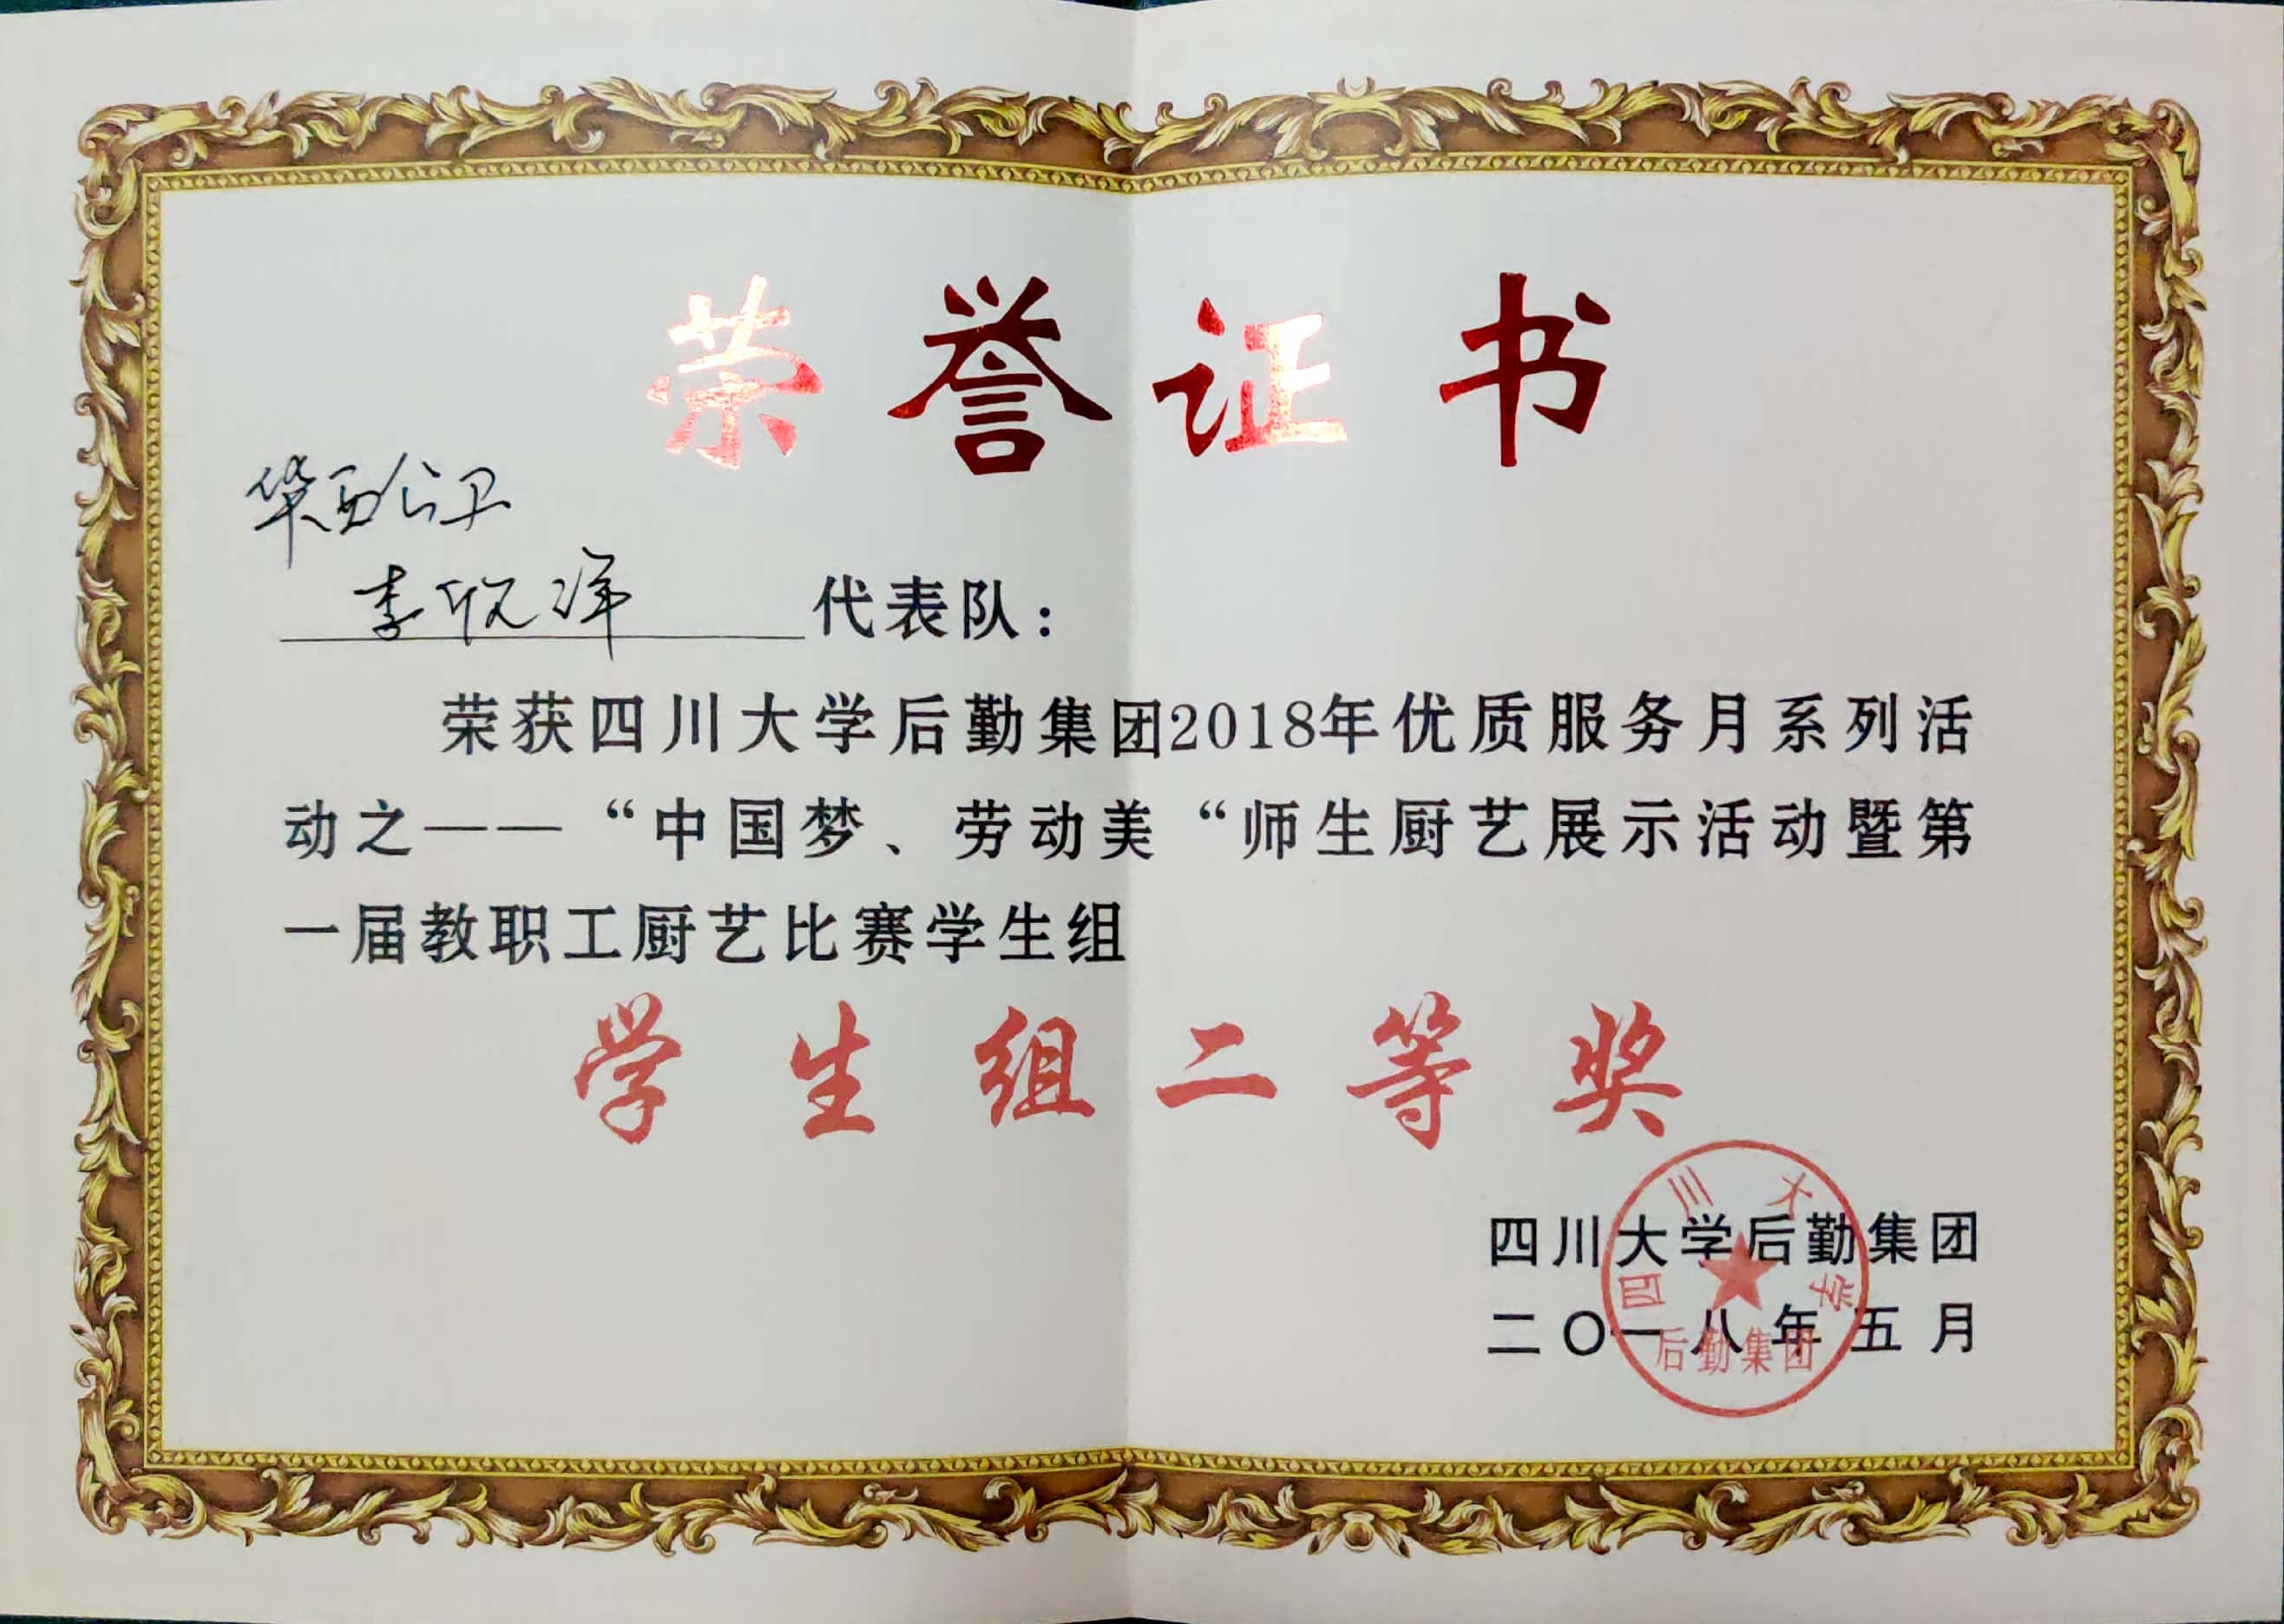 荣誉证书
华西公卫
李欣洋 代表队：
荣获四川大学后勤集团2018年优质服务月系列活
动之——“中国梦、劳动美“师生厨艺展示活动暨第
一届教职工厨艺比赛学生组
学生组二等奖
四川大学后勤集团
二〇一八年五月
四川大学
后勤集团